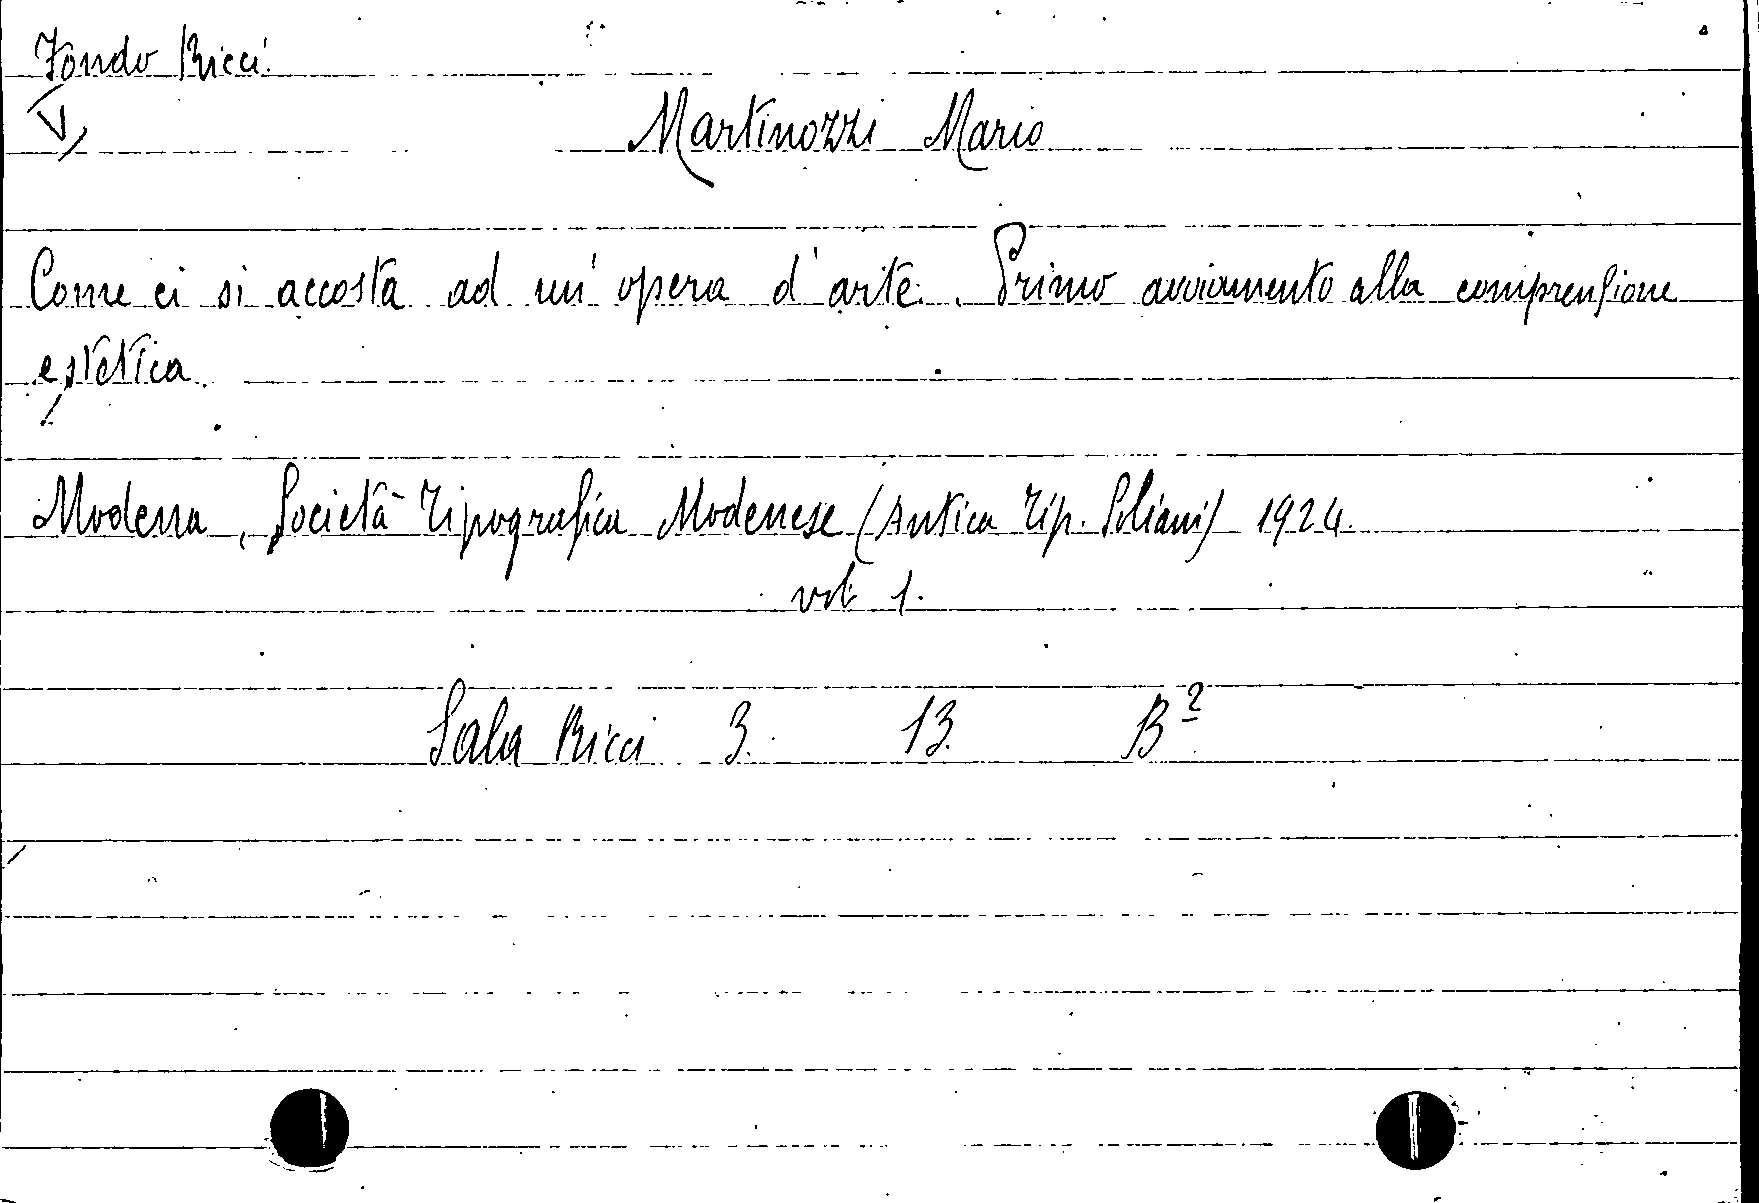 Fondo Ricci
Martinozzi Mario
Come ci si accosta ad un' opera d' arte. Primo avviamento alla comprensione
estetica.
Modena, Società Tipografica Modenese (Antica Tip. Soliani) 1924.
vol. 1.
Sala Ricci 3. 13. B2